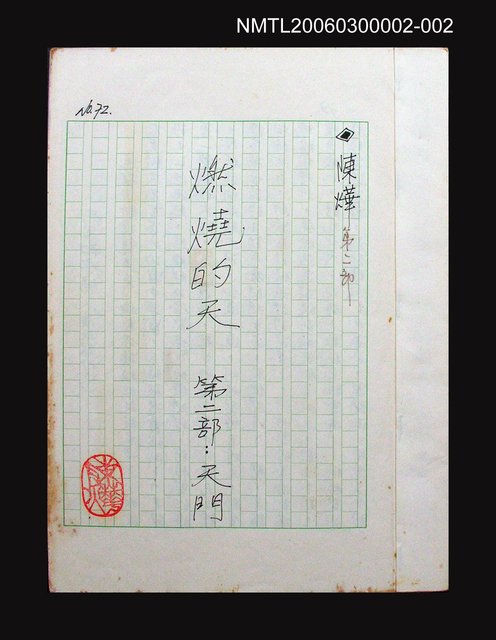 NMTL20060300002-002
No.72.
◈陳燁 第二部
燃燒的天 第二部：天門